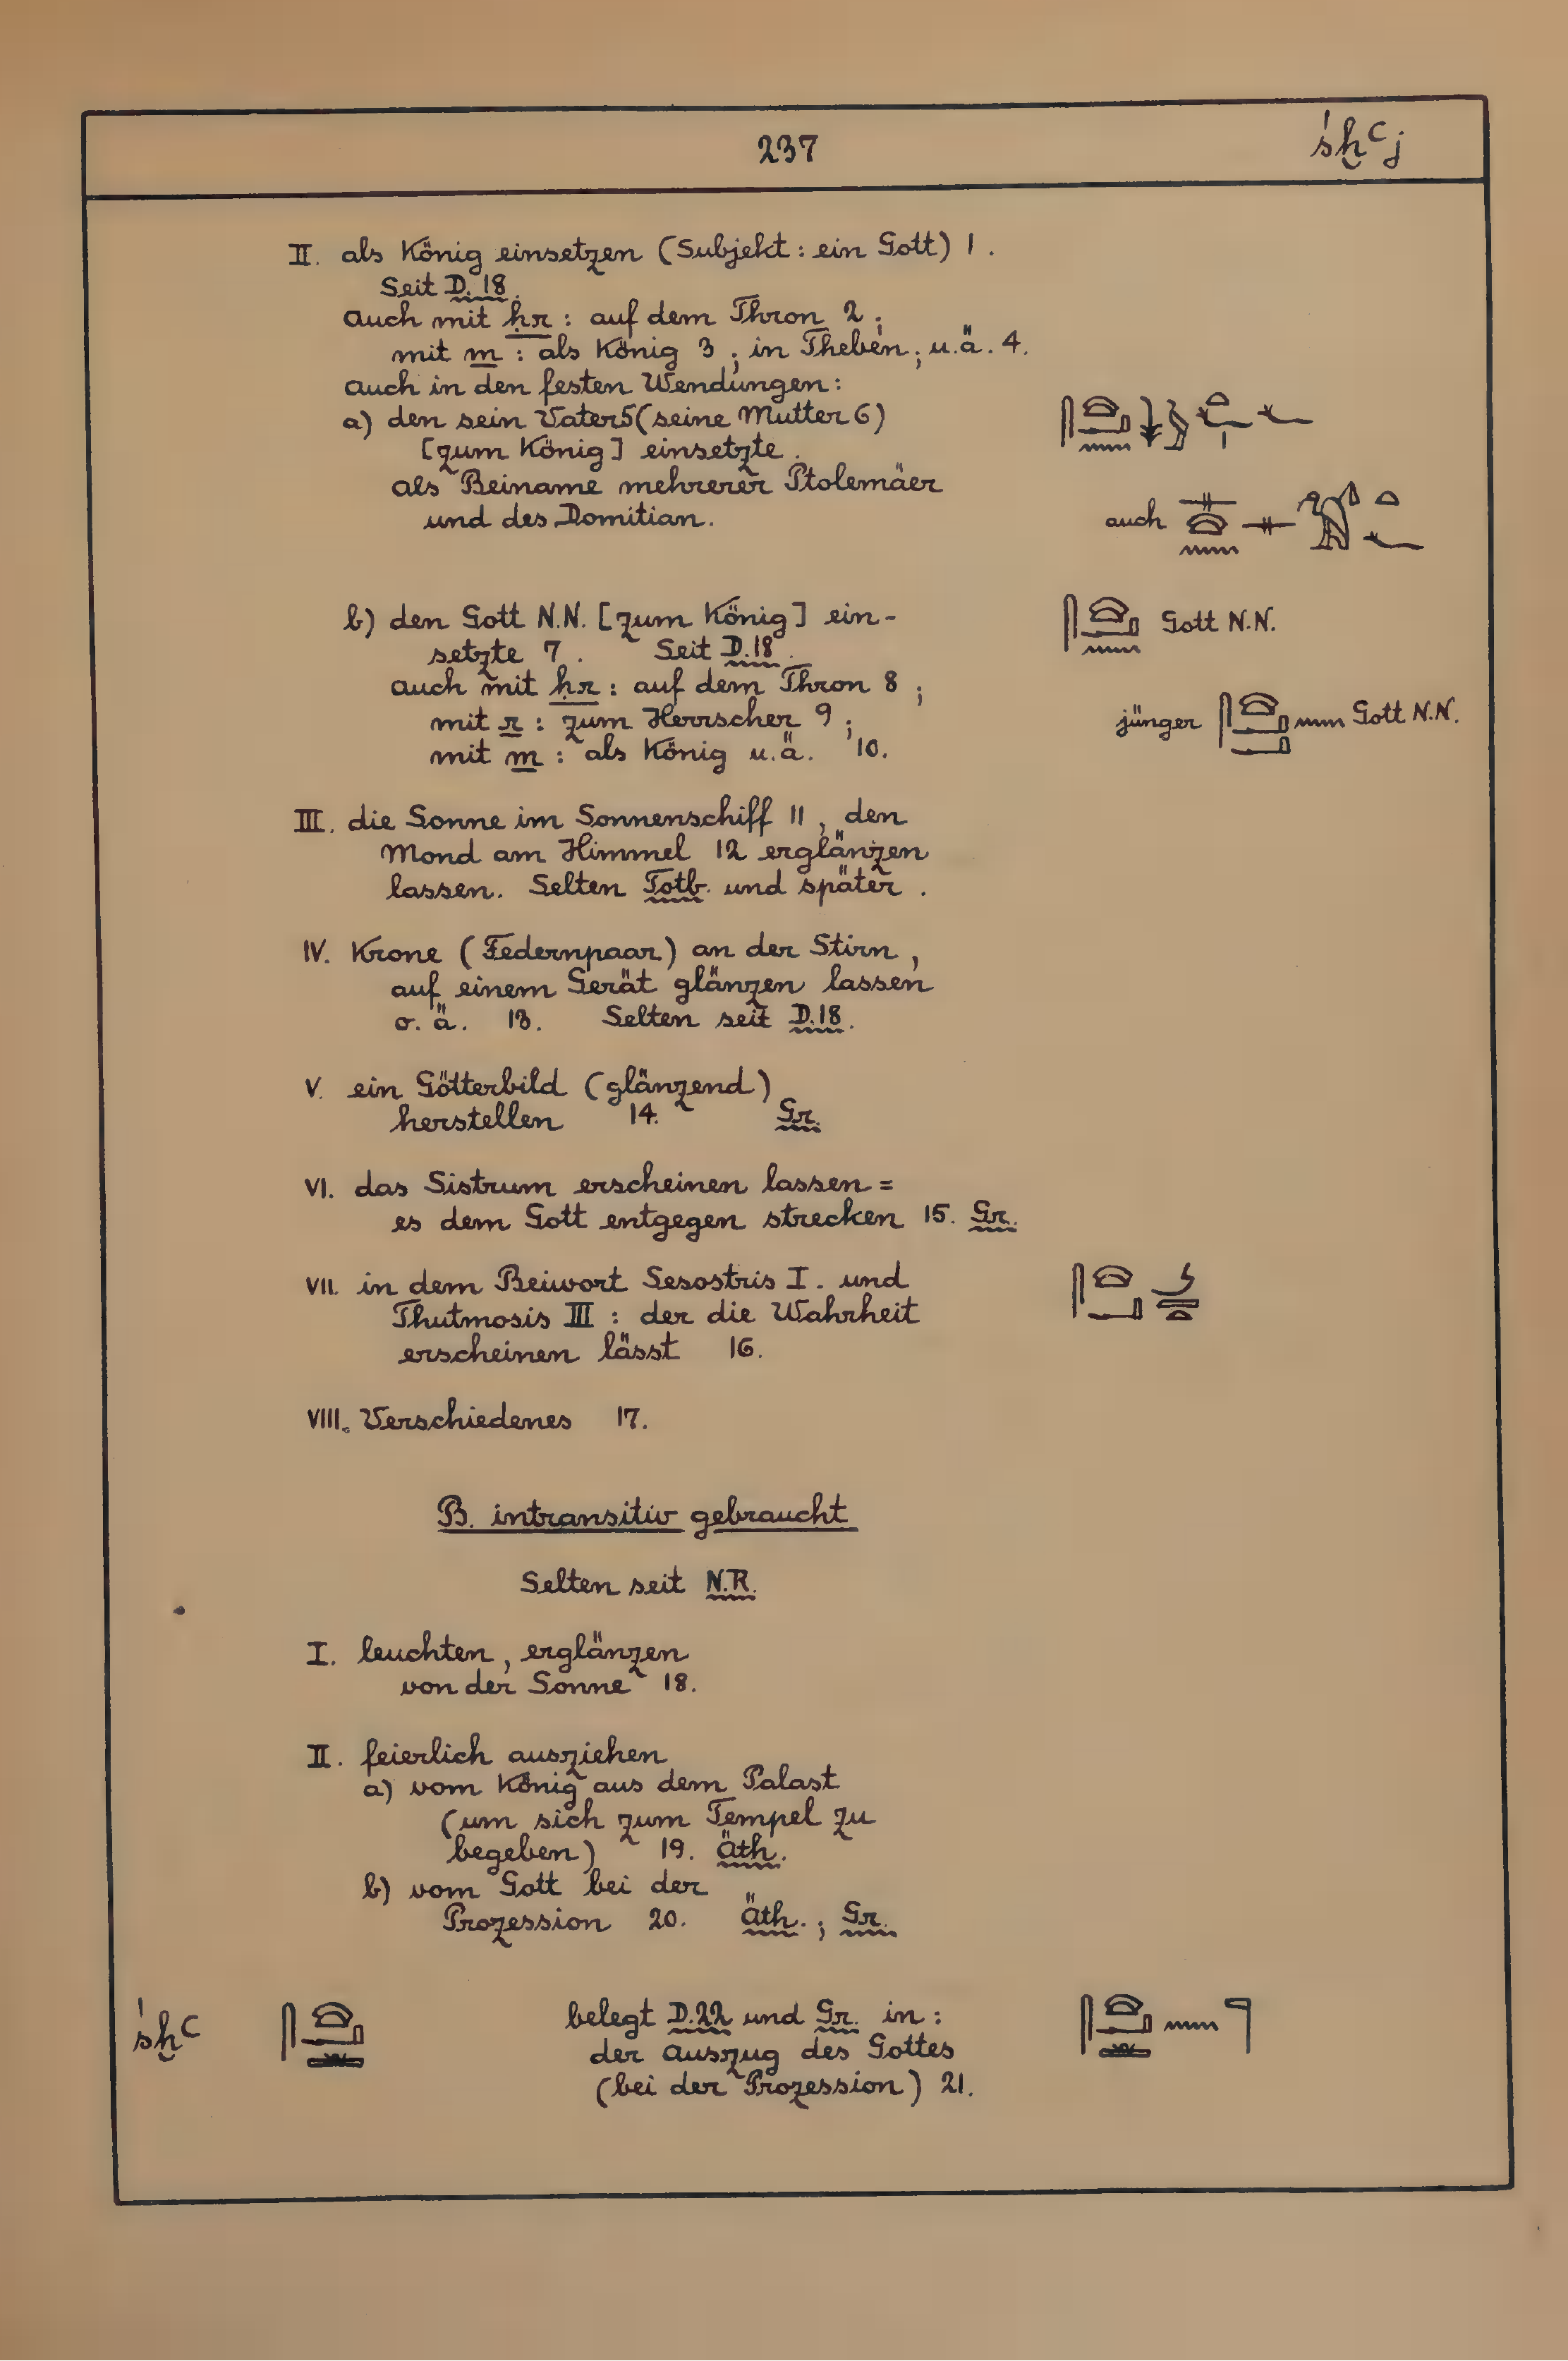 237
śḫꜥj
II. als König einsetzen (Subjekt: ein Gott) 1.
Seit D. 18.
auch mit ḥr: auf dem Thron 2;
mit m: als König 3; in Theben; u.ä. 4.
auch in den festen Wendungen:
a) den sein Vater 5 (seine Mutter 6)
[zum König] einsetzte.
als Beiname mehrerer Ptolemäer
und des Domitian.
auch
b) den Gott N.N. [zum König] ein-
setzte 7. Seit D.18.
Gott N.N.
auch mit ḥr: auf dem Thron 8;
mit r: zum Herrscher 9;
jünger Gott N.N.
mit m: als König u.ä. 10.
III. die Sonne im Sonnenschiff 11, den
Mond am Himmel 12 erglänzen
lassen. Selten Totb. und später.
IV. Krone (Federnpaar) an der Stirn,
auf einem Gerät glänzen lassen
o.ä. 13. Selten seit D.18.
V. ein Götterbild (glänzend)
herstellen 14. Gr.
VI. das Sistrum erscheinen lassen =
es dem Gott entgegen strecken 15. Gr.
VII. in dem Beiwort Sesostris I. und
Thutmosis III: der die Wahrheit
erscheinen lässt 16.
VIII. Verschiedenes 17.
B. intransitiv gebraucht
Selten seit N.R.
I. leuchten, erglänzen
von der Sonne 18.
II. feierlich ausziehen
a) vom König aus dem Palast
(um sich zum Tempel zu
begeben) 19. Äth.
b) vom Gott bei der
Prozession 20. Äth.; Gr.
śḫꜥ
belegt D.22 und Gr. in:
der Auszug des Gottes
(bei der Prozession) 21.